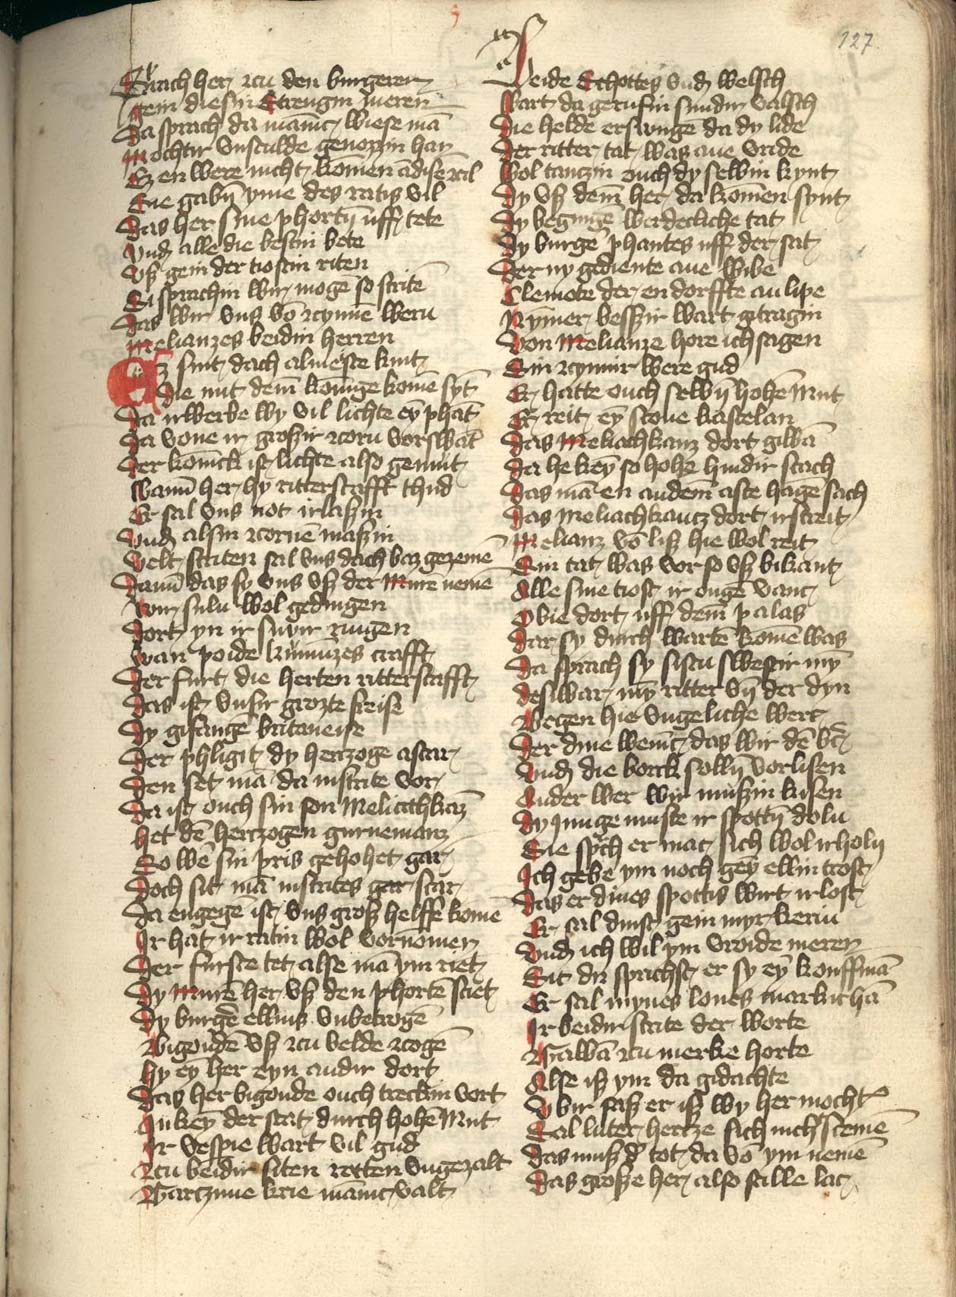 127
Sprach her zcu den burgeren
gein diesin strengin jueren
Da sprach da manic wiese mā
Mochtir vnsculde genozzin han
Ez en were nicht komen ā disē zcil
Sue gabin yme des ratis vil
Das her sine phortin uff tete
Vnd alle die bestin bete
Vz gein der tiostin riten
Si sprachin wir moge so strite
Das wir vns vō zcynnē weru
Melianzes beidin herren
Ez sint dach almeste kint
Die mit dem konige komē synt
Da irwerbe wy vil lichte ey phāt
Da vone ir grozir zcorn vorswāt
Der konick ist lichte also gemut
Wann her hy ritterscafft thud
Er sal vns not irlazin
Vnd alsin zcornē mazin
Velt striten sal vns dach baz gezemē
Dann das sy vns vz der mure nemē
Wir suln wol gedingen
Dort yn ir snvir ringen
Wan poide kvnnzes crafft
Der furt die herten ritterscafft
Das ist vnsir grozte freise
Dy gifange britaneise
Der phligit dy hertzoge astar
Den set mā da instrite vor
Da ist ouch sin son Meliachkaz
Het dē hertzogen gurnemanz
So wē sin pris gehohet gar
Doch sit mā instrites gar scar
Da engegē ist vns groz helffe komē
Ir hat ir ratin wol vornomen
Der furste tet alse mā ym riet
Dy murē her vz den phorte sciet
Dy burgē ellins vnbetrogē
Bigondē vz zcu velde zcogē
Hy ey her eyn andir dort
Das her bigonde ouch treckin vort
In key der stat durch hohē mut
Ir vespie wart vil gud
Zcu beidir siten rotten vngezalt
Gartzune krie manicvalt
Beide schottis vnd welsch
Wart da gerufin sundir valsch
Die helde erswungē da dy lide
Der ritter tat was ane vride
Wol tanczin ouch dy selbin kynt
Dy vz dem her da komen synt
Dy begingē werdecliche tat
Dy burgē phantes uff der sat
Der ny gediente ane wibe
Clemote der en dorffte an lipe
Nymer bessir wart gitragin
Von Melianze hore ich sagen
Sin zcymir were gud
Er hatte ouch selbin hohē mut
Er reit ey scone kastelan
Das Meliachkanz dort giwā
Da he key so hohe hindir stach
Das mā en an dem aste hāge sach
Das Meliachkantz dort irstreit
Melianz vō liz hie wol reit
Sin tat was vor so vz bikant
Alle sine tiost ir ougē vant
Obie dort uff dem palas
Dar sy durch warte kome was
Da sprach sy sistu swestir my
Deswar my ritter vn der dyn
Begen hie vngeliche werc
Der dine wenit das wir dē bc
Vnd die borck solln vorlisen
Ander wer wir muzin kisen
Dy junge muste ir spottin doln
Sue sprach er mac sich wol irholn
Ich gebe ym noch gey ellin trost
Das er dines spottis wirt irlost
Er sal dinst gein myr keru
Vnd ich wil ym vroide meren
Sit du sprichst er sy ey kouffmā
Er sal mynes lones markit hā
Ir beidir strite der worte
Gawā zcu merke horte
Alse iz ym da gidachte
Vbir saz er iz wy her mocht
Sal luter hertze sich nich scemē
Das muz d tot da vo ym nemē
Das groze her also stille lac